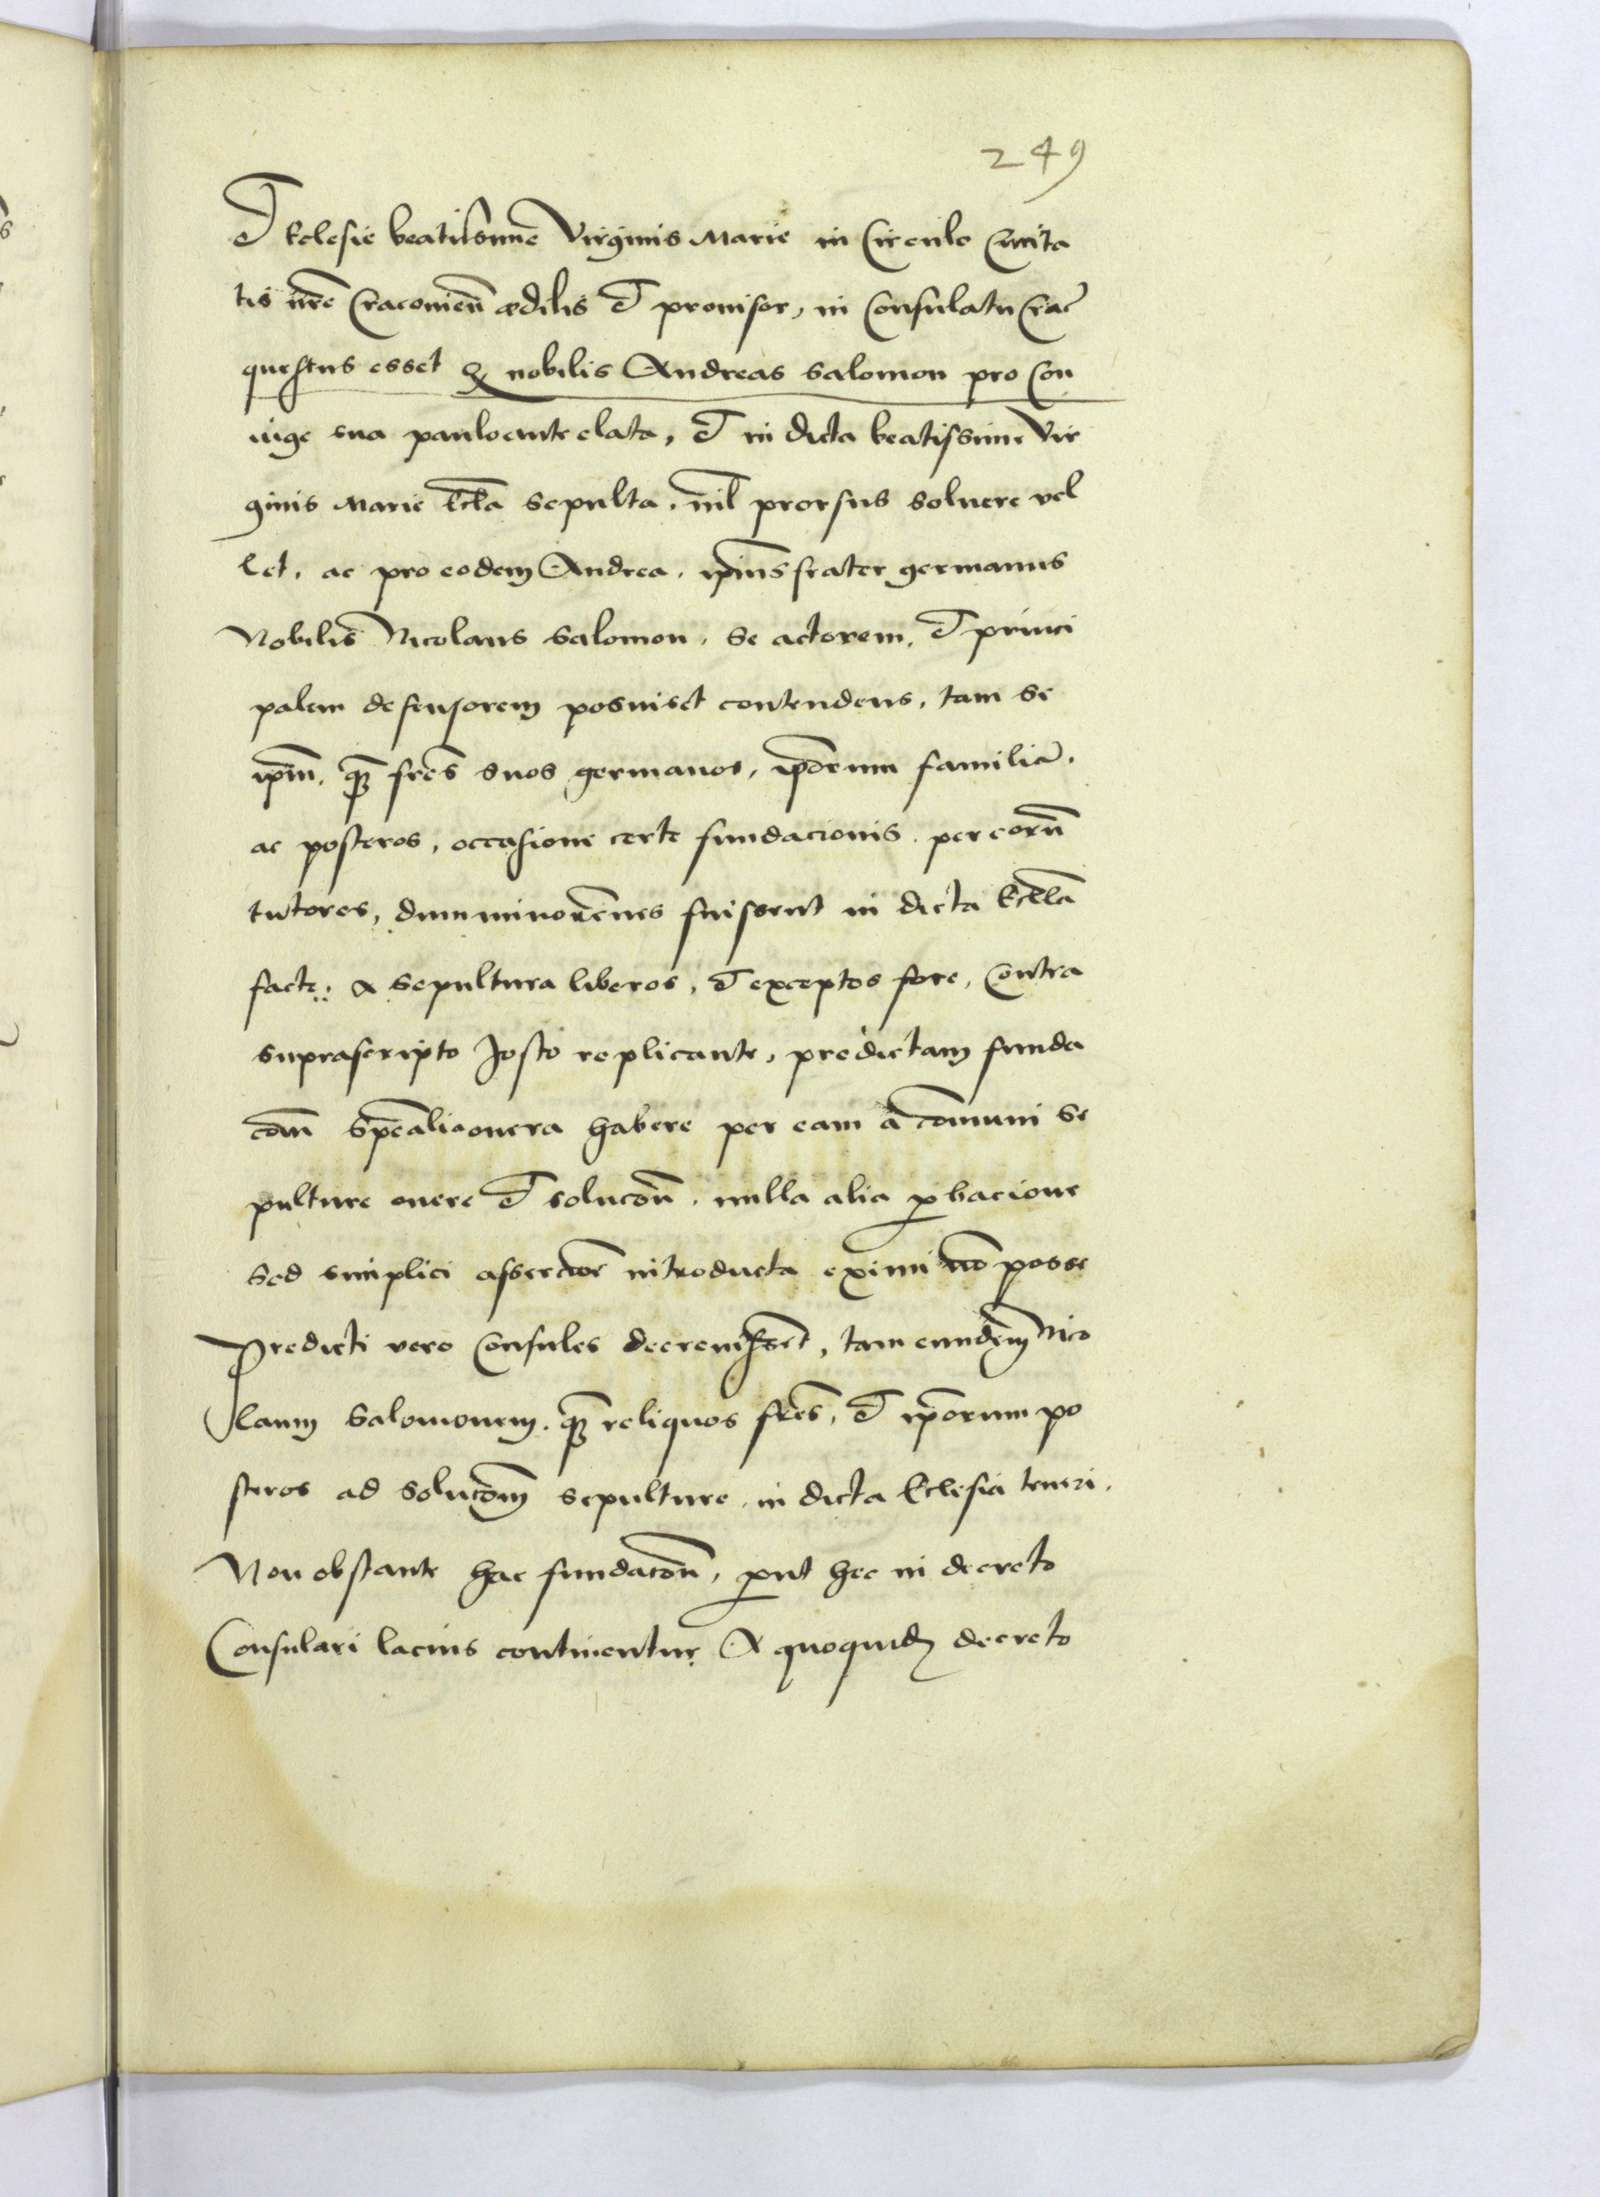 249
Et Eclesie beatissime Virginis Marie in Circulo Civita
tis nr̄e Cracovien̄ ædilis et provisor, in Consulatu Crac̄
questus esset q̨ nobilis Andreas Salomon pro Con
iuge sua pauloante elata, et in dicta beatissime Vir
ginis Marie Eccl̄a sepulta, nil̄ prorsus solvere vel
let. ac pro eodem Andrea. ip̄ius frater germanus
Nobilis Nicolaus Salomon. se actorem. et princi
palem defensorem posuisset contendens, tam se
ip̄m. qꝫ fr̄es suos germanos, ip̄orum familiā.
ac posteros, occasione certe fundacionis. per eorū
tutores, dum minorēnes fuissent in dicta Eccl̄ia
facte: a sepultura liberos, et exceptos fore, Contra
suprascripto Josto replicante, predictam funda
cōm sp̄ealia onera habere per eam a cōmuni se
pulture onere et solucōn. nulla alia ꝓbacione
sed simplici assercōe introducta eximi nō posse
Predicti vero Consules decrevissēt, tam eundem̄ Nico
laum Salomonem. qꝫ reliquos fr̄es, et ip̄orum po
steros ad solucōm sepulture in dicta Eclesia teneri.
Non obstante hac fundacōn, ꝓut hec in decreto
Consulari lacius continentur A quoquidē decreto